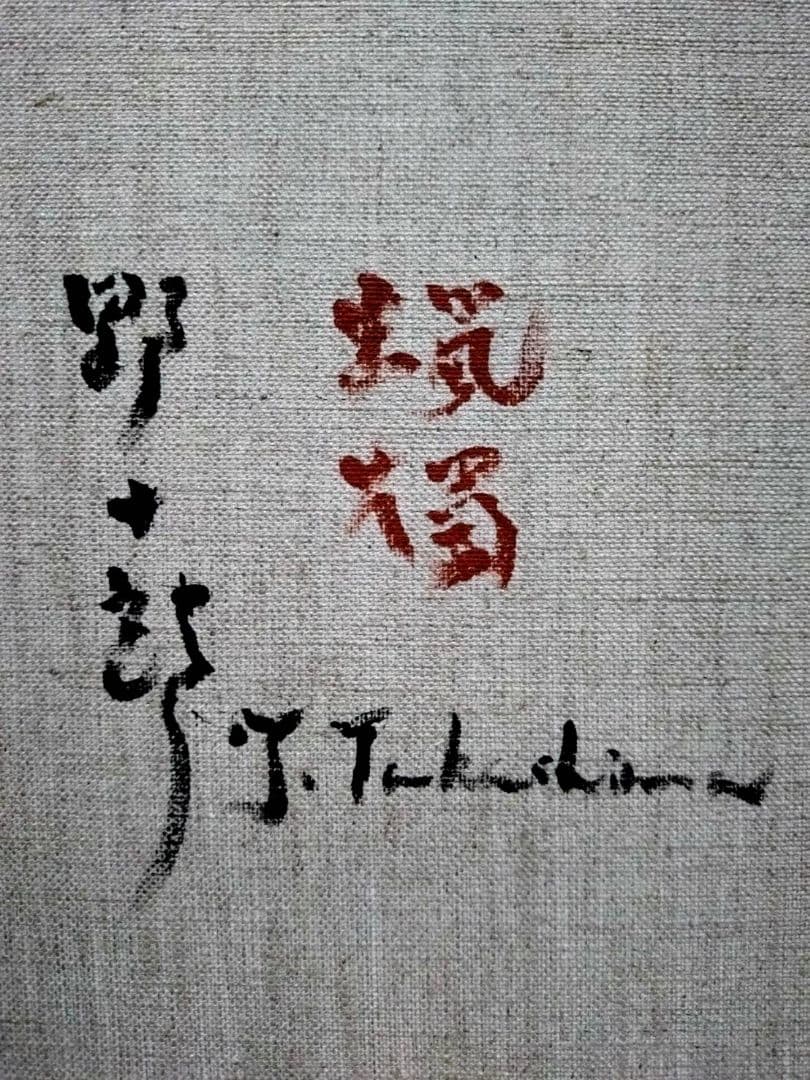 蝋燭
野十郎
Y. Takashima